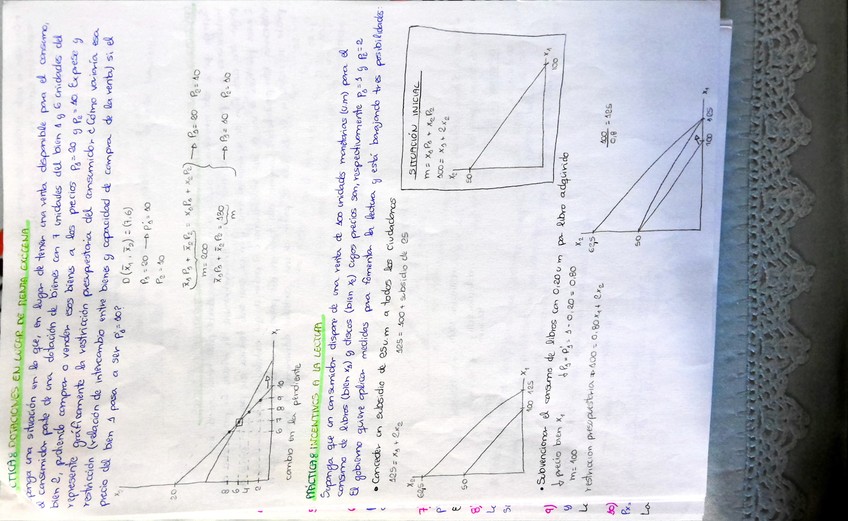 CTICA 8 DOTACIONES EN LUGAR DE RENTA EXÓGENA
ponga una situación en la que, en lugar de tener una renta disponible para el consumo,
el consumidor parte de una dotación de bienes con 7 unidades del bien 1 y 6 unidades del
bien 2, pudiendo comprar o vender esos bienes a los precios P1=20 y P2=10. Exprese y
represente gráficamente la restricción presupuestaria del consumidor. ¿Cómo variaría esa
restricción (relación de intercambio entre bienes y capacidad de compra de la renta) si el
precio del bien 1 pasa a ser P1=10?
D(x̄1, x̄2)=(7,6)
P1=20 → P1'=10
P2=10
x̄1P1 + x̄2P2 = x1P1 + x2P2
m=200
→ P1=20 P2=10
x̄1P1 + x̄2P2 = 130
m
→ P1=10 P2=10
20
8
6
4
2
6 7 8 9 10
x1
cambio en la pendiente
PRÁCTICA 8 INCENTIVOS A LA LECTURA
Suponga que un consumidor dispone de una renta de 100 unidades monetarias (um) para el
consumo de libros (bien x1) y discos (bien x2) cuyos precios son, respectivamente P1=1 y P2=2
El gobierno quiere aplicar medidas para fomentar la lectura y está barajando tres posibilidades:
• Conceder un subsidio de 25 u.m a todos los ciudadanos
125 = 100 + subsidio de 25
125 = x1 + 2x2
x2
62,5
50
100 125
x1
SITUACIÓN INICIAL
m = x1P1 + x2P2
100 = x1 + 2x2
x2
50
100
x1
• Subvencionar el consumo de libros con 0,20 u.m por libro adquirido
↓ precio bien x1
↓P1 = P1' = 1 - 0,20 = 0,80
m = 100
restricción presupuestaria → 100 = 0,80x1 + 2x2
100/0,8 = 125
x2
62,5
50
100 125
x1